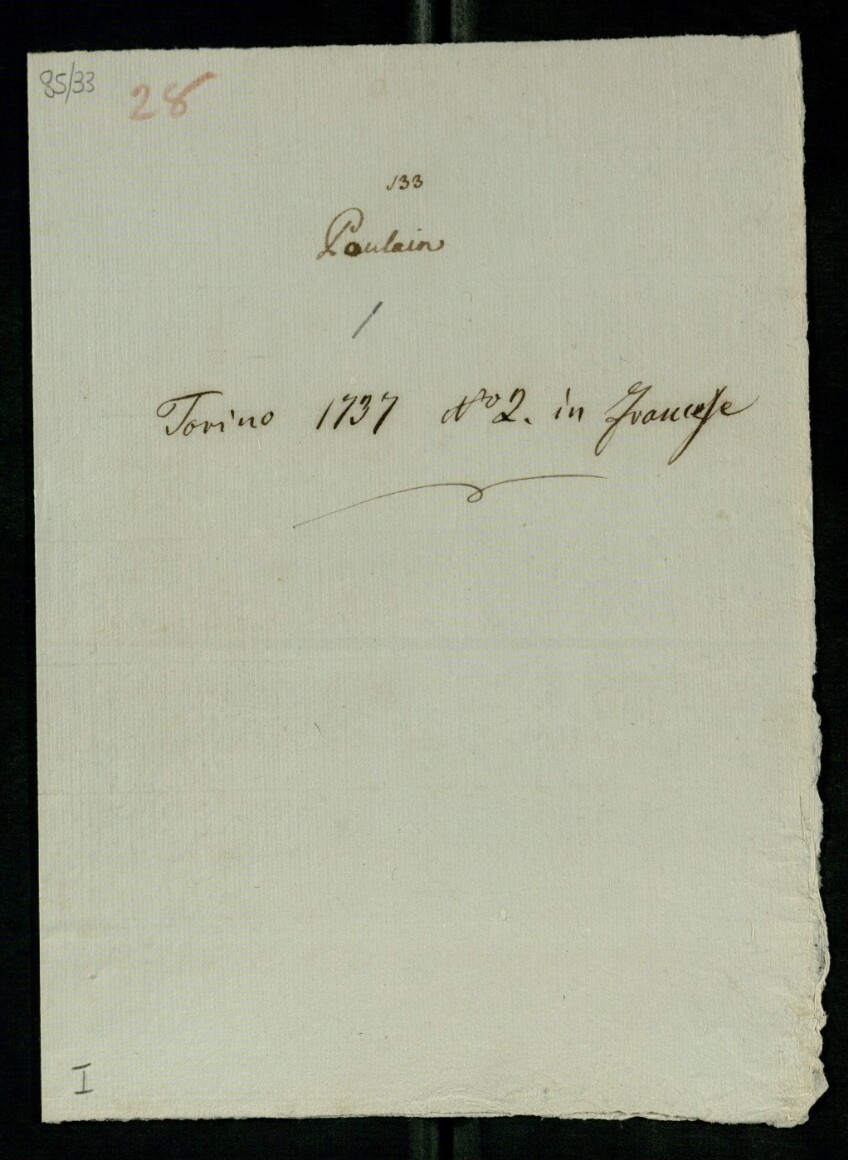 85/33
28
133
Poulain
/
Torino 1737 No 2. in Francese
I